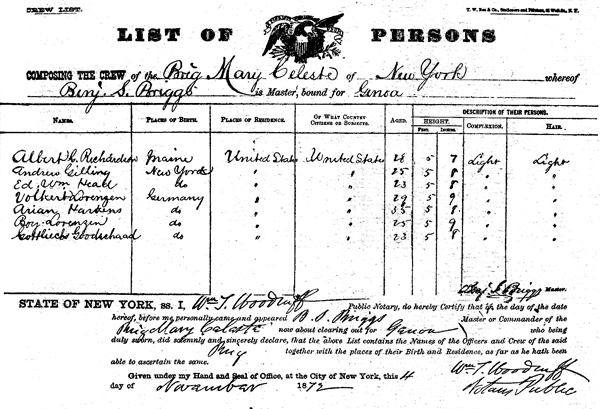 CREW LIST.
T. W. & Co., Stationers and Printers, Wall St., N. Y.
LIST OF PERSONS
COMPOSING THE CREW of the Brig Mary Celeste of New York whereof
Benj. S. Briggs is Master, bound for Genoa
NAMES. PLACES OF BIRTH. PLACES OF RESIDENCE. OF WHAT COUNTRY CITIZENS OR SUBJECTS. AGED. DESCRIPTION OF THEIR PERSONS.
HEIGHT. FEET. INCHES. COMPLEXION. HAIR.
Albert G. Richardson Maine United States United States 28 5 7 Light Light
Andrew Gilling New York " " 25 5 8 " "
Ed. Wm Head do " " 23 5 8 " "
Volkert Lorenzen Germany " " 29 5 9 " "
Arian Martens do " " 35 5 8 " "
Boy Lorenzen do " " 25 5 9 " "
Gottlieb Goodschaad do " " 23 5 8 " "
Benj. S. Briggs Master.
STATE OF NEW YORK, ss. I, Wm. T. Woodruff Public Notary, do hereby Certify that on the day of the date
hereof, before me personally came and appeared B. S. Briggs Master or Commander of the
Brig Mary Celeste now about clearing out for Genoa who being
duly sworn, did solemnly and sincerely declare, that the above List contains the Names of the Officers and Crew of the said
Brig together with the places of their Birth and Residence, as far as he hath been
able to ascertain the same.
Given under my Hand and Seal of Office, at the City of New York, this 4
day of November 1872
Wm. T. Woodruff
Notary Public